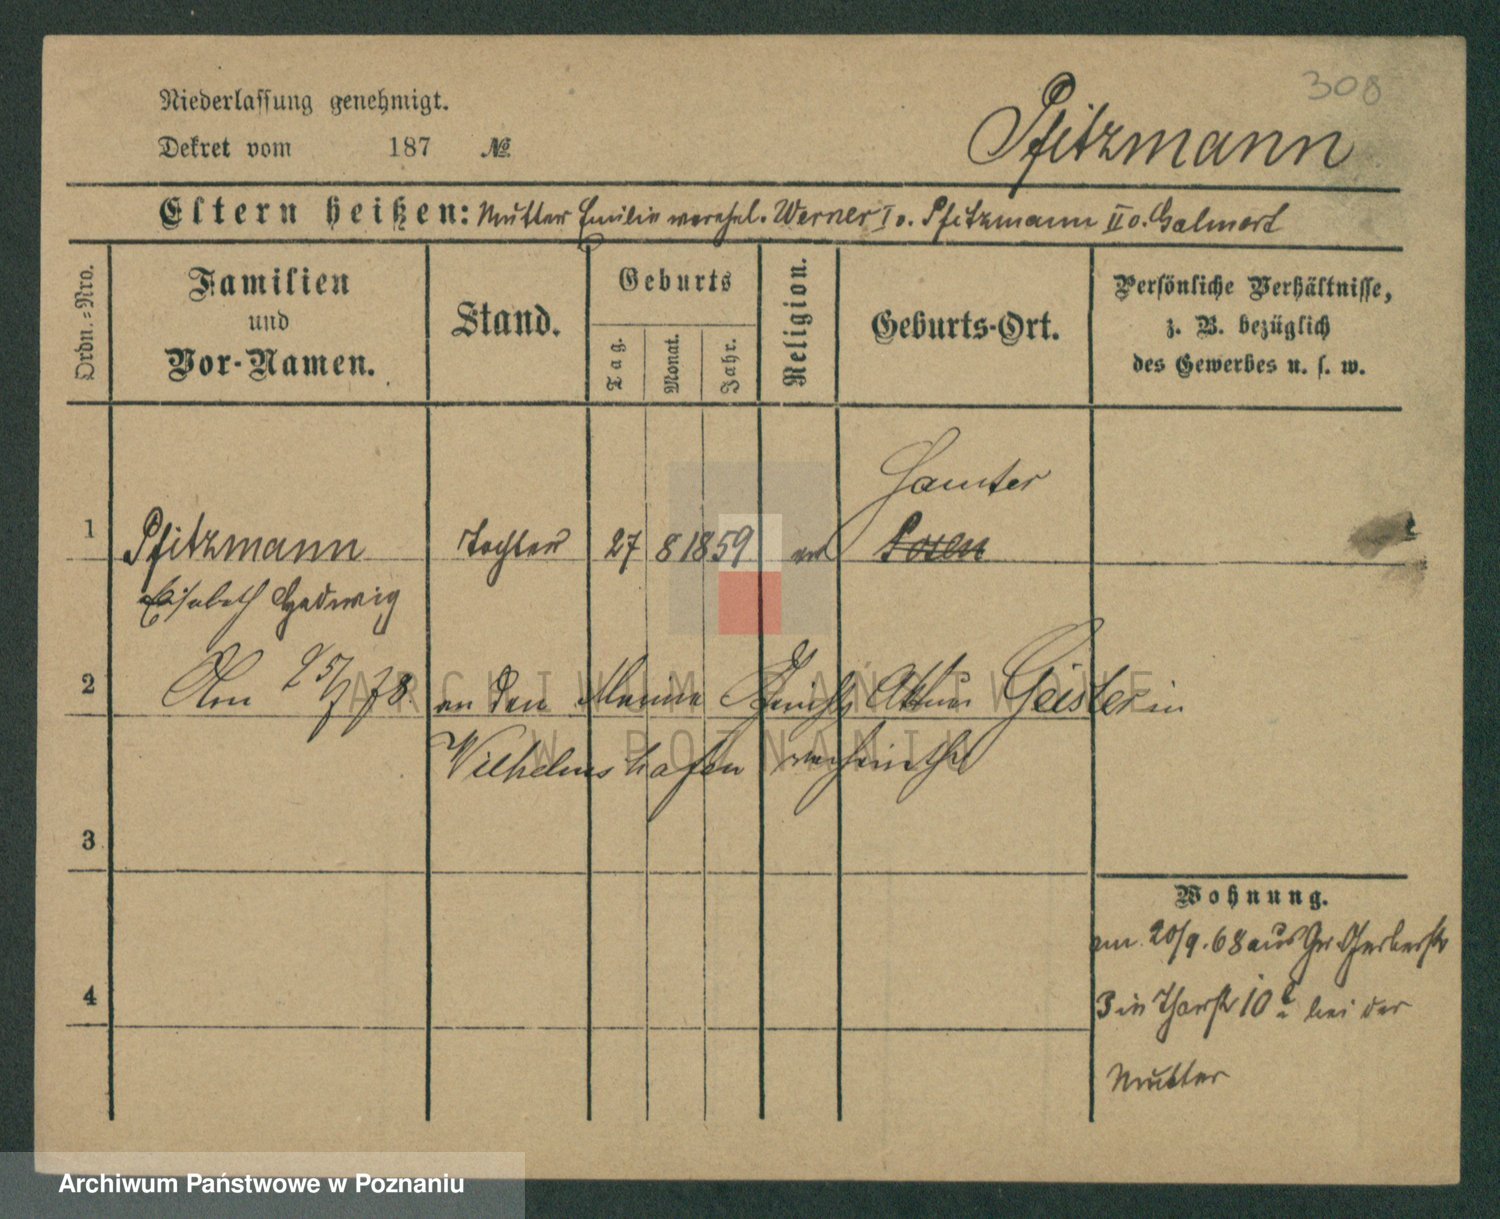 308
Niederlassung genehmigt.
Pfitzmann
Dekret vom 187 №
Eltern heißen: Mutter Emilie verehel. Werner I o. Pfitzmann II o.
Ordn.=Nro.
Familien
und
Vor-Namen.
Stand.
Geburts
Tag.
Monat.
Jahr.
Religion.
Geburts-Ort.
Persönliche Verhältnisse,
z. B. bezüglich
des Gewerbes u. s. w.
Samter
1 Pfitzmann Tochter 27 8 1859 ev Posen
Elisabeth Hedwig
2 Am 78 an den Geister in
Wilhelmshafen verheirathet
3
4
Wohnung.
am 20/9. 68 aus Gr. Gerberstr
3 in Thorstr 10 bei der
Mutter
ARCHIWUM PAŃSTWOWE
W POZNANIU
Archiwum Państwowe w Poznaniu